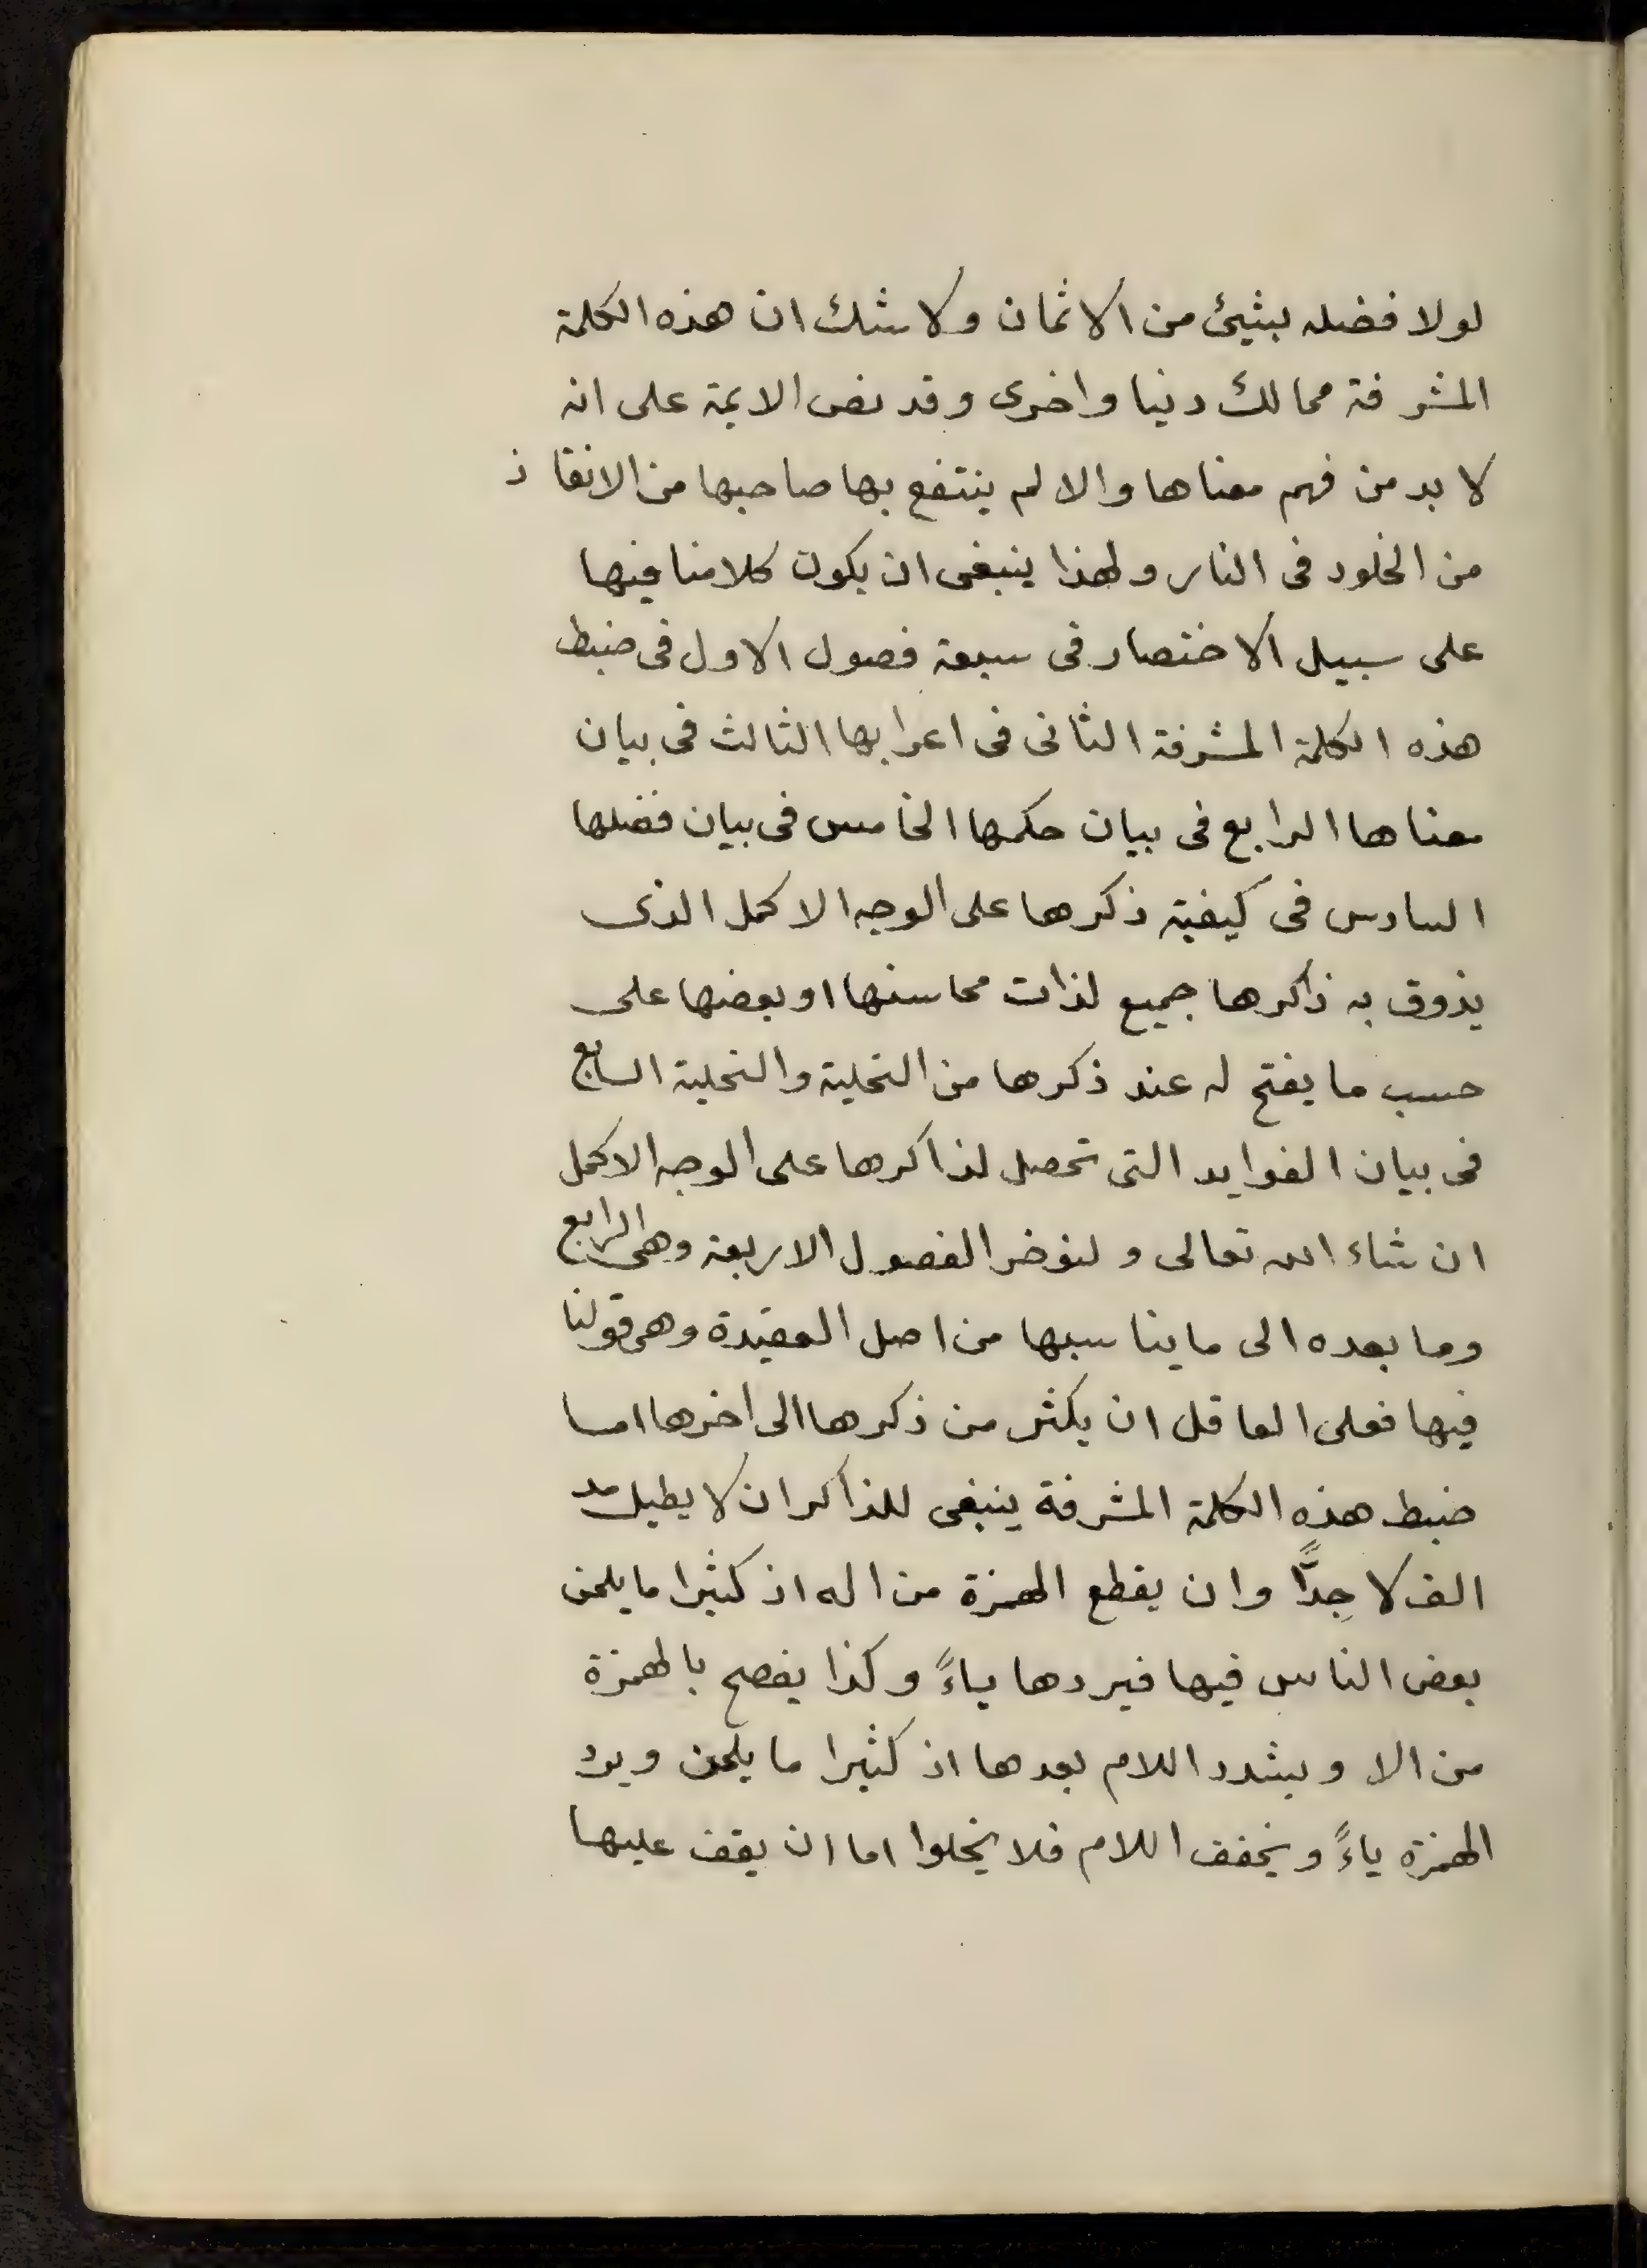 لولا فضله بشيئ من الاثمان ولا شك ان هذه الكلمة
المشرفة ممالك دنيا واخرى وقد نص الايمة على انه
لا بد من فهم معناها والا لم ينتفع بها صاحبها من الانقا ذ
من الخلود فى النار ولهذا ينبغى ان يكون كلامنا فيها
على سبيل الاختصار فى سبعة فصول الاول فى ضبط
هذه الكلمة المشرفة الثانى فى اعرابها الثالث فى بيان
معناها الرابع فى بيان حكمها الخامس فى بيان فضلها
السادس فى كيفية ذكرها على الوجه الاكمل الذى
يذوق به ذاكرها جميع لذات محاسنها او بعضها على
حسب ما يفتح له عند ذكرها من التخلية والتحلية السابع
فى بيان الفوايد التى تحصل لذاكرها على الوجه الاكمل
ان شاء الله تعالى ولنوخر الفصول الاربعة وهى الرابع
وما بعده الى ما يناسبها من اصل العقيدة وهى قولنا
فيها فعلى العاقل ان يكثر من ذكرها الى اخرها اما
ضبط هذه الكلمة المشرفة ينبغى للذاكر ان لا يطيل مد
الف لا جِدًّا وان يقطع الهمزة من اله اذ كثيرا ما يلحن
بعض الناس فيها فيردها ياءً وكذا يفصح بالهمزة
من الا ويشدد اللام بعدها اذ كثيرا ما يلحن ويرد
الهمزة ياءً ويخفف اللام فلا يخلوا اما ان يقف عليها